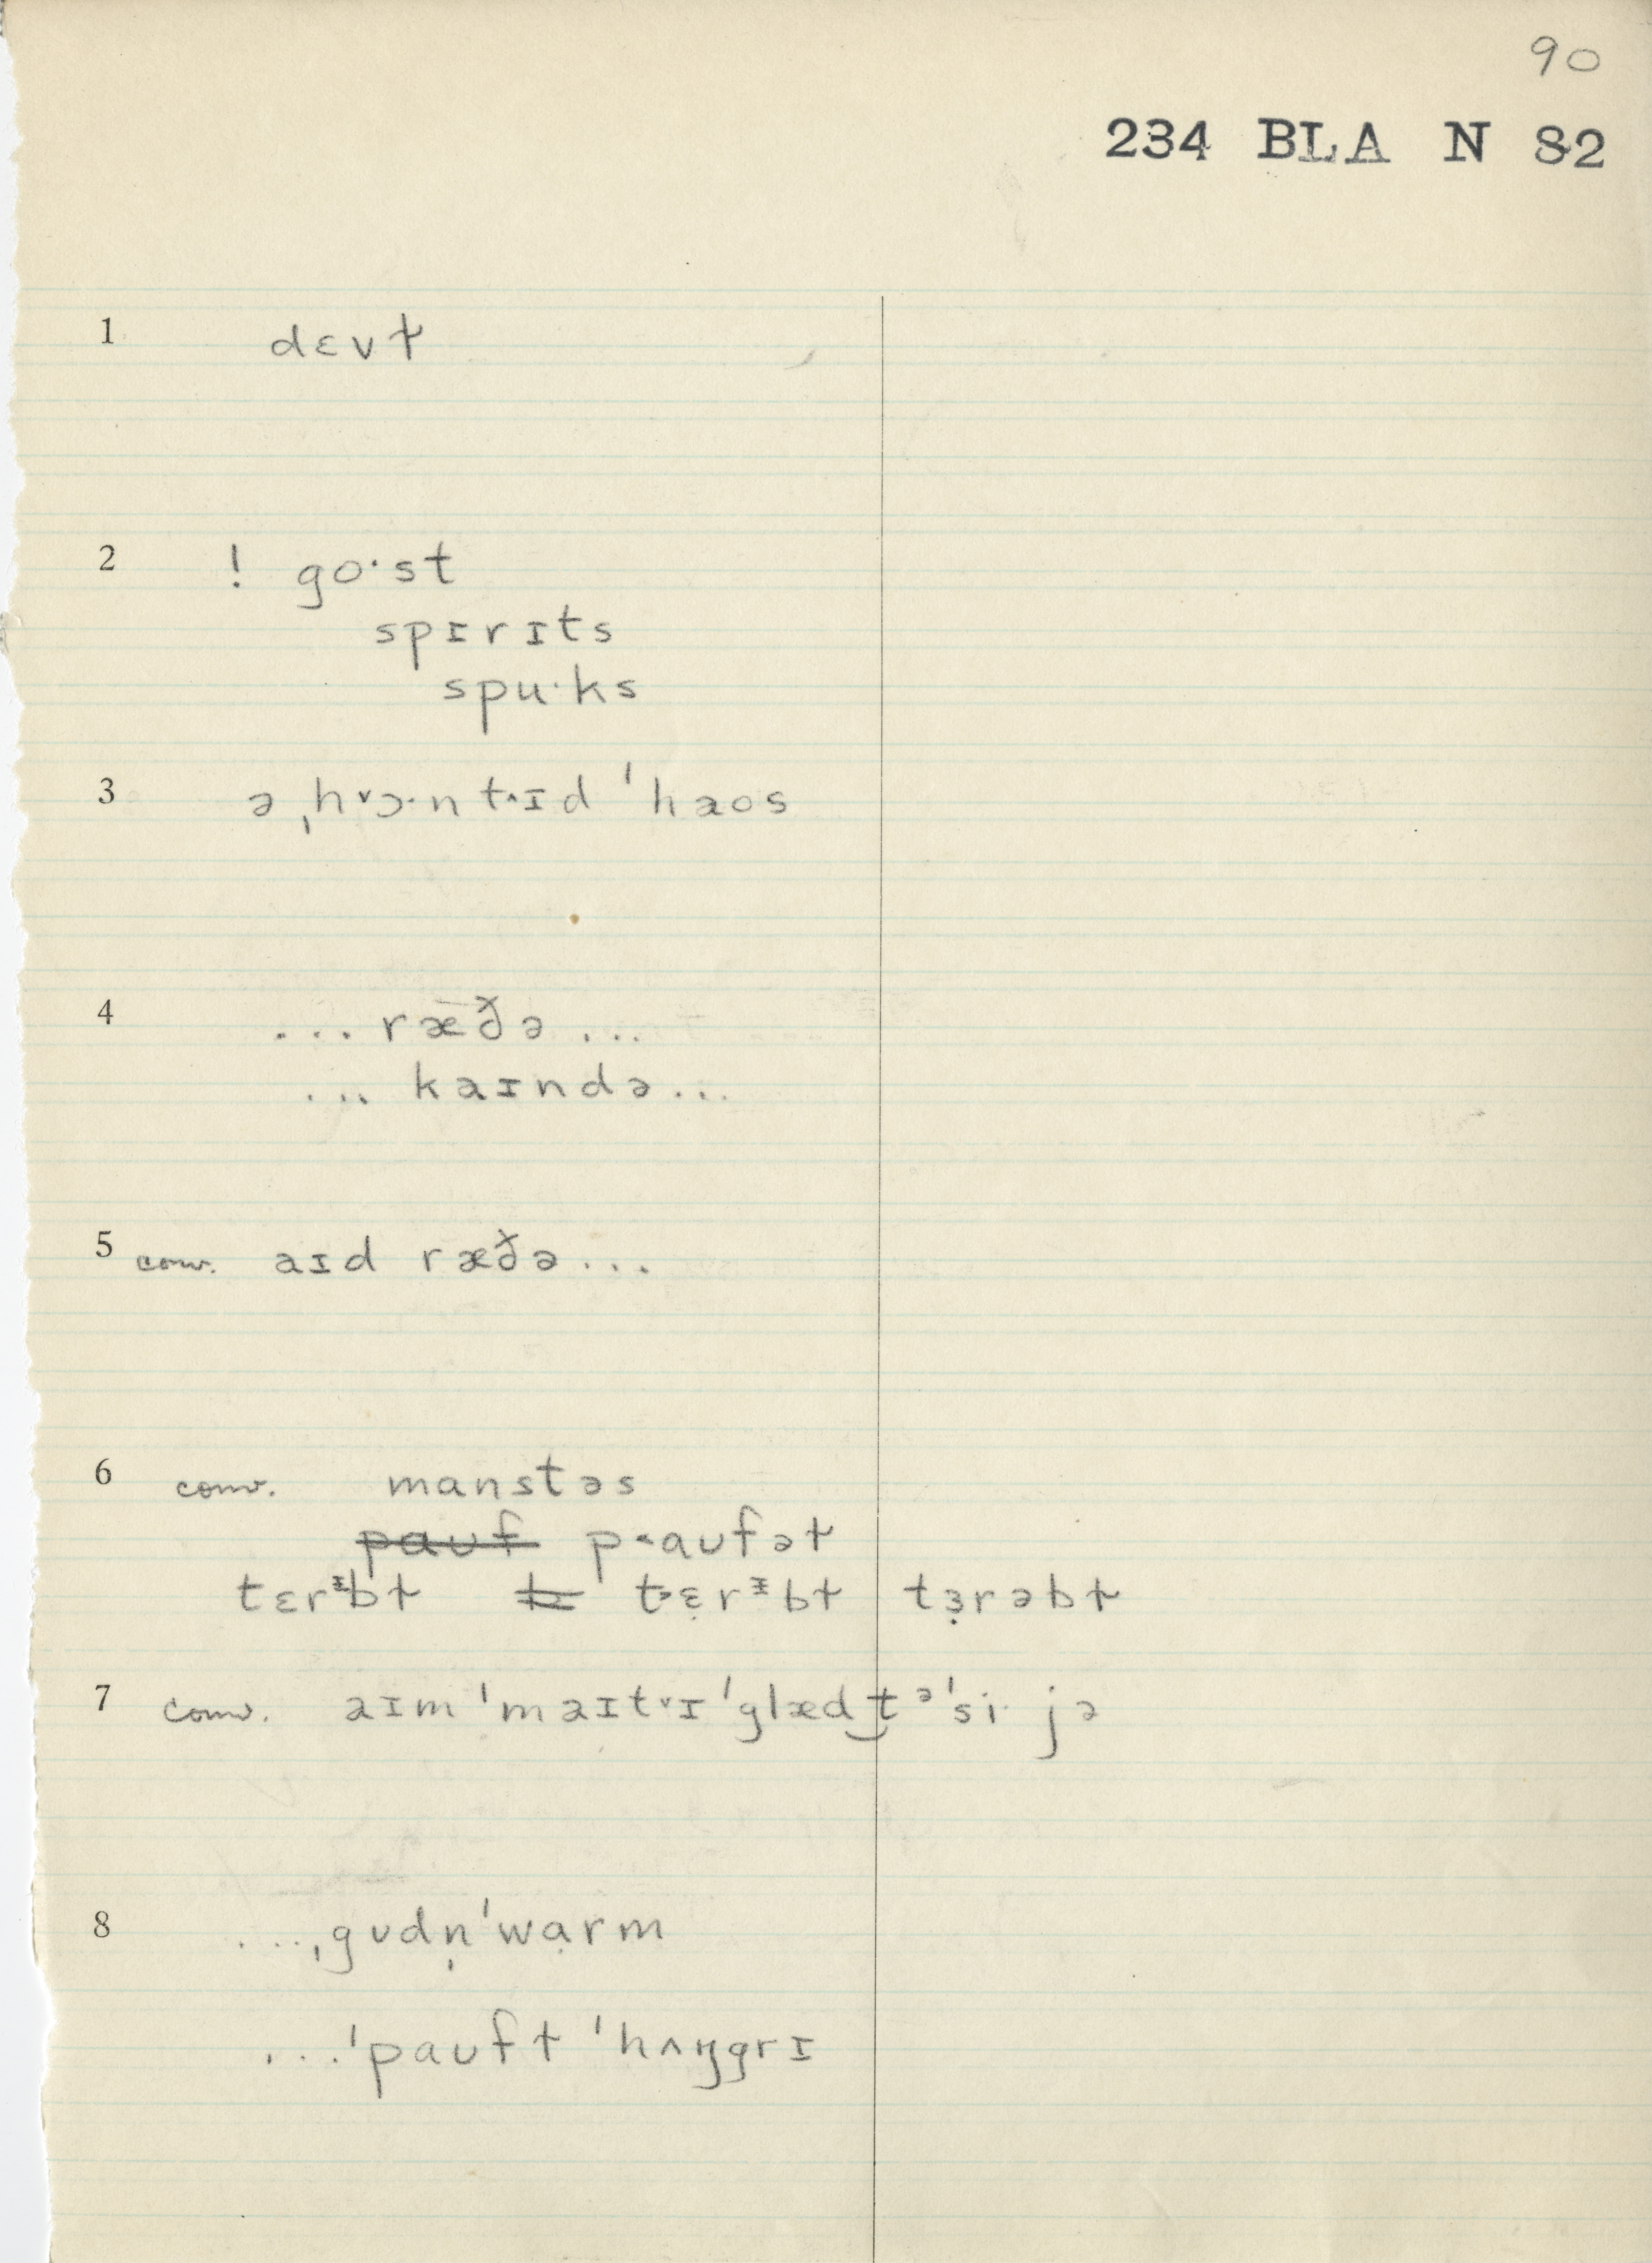 90
234 BLA N 82
1 dɛvɫ
2 ! go·st
spɪrɪts
spu·ks
3 ə ˌh˅ɔ·nt^ɪd ˈhaos
4 ... ræðə ...
... kaɪndə ...
5 conv. aɪd ræðə ...
6 conv. manstəs
p˂aʊfəɫ
tɛrᵻbɫ t˃ɛ̣rᵻbɫ tɜ̣rəbɫ
7 conv. aɪm ˈmaɪt˅ɪ ˈglæd‿tᵊ ˈsi· jə
8 ... ˌgʊdn̩ ˈwɑ̣rm
... ˈpaʊfɫ ˈhʌŋgrɪ